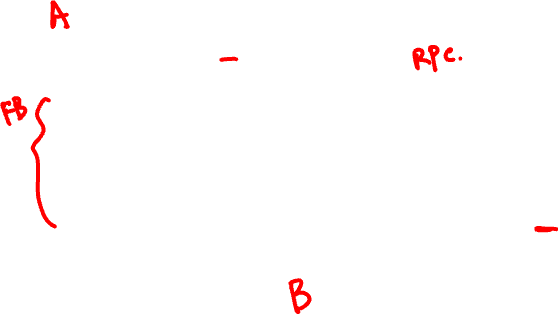 A
RPC.
FB
B